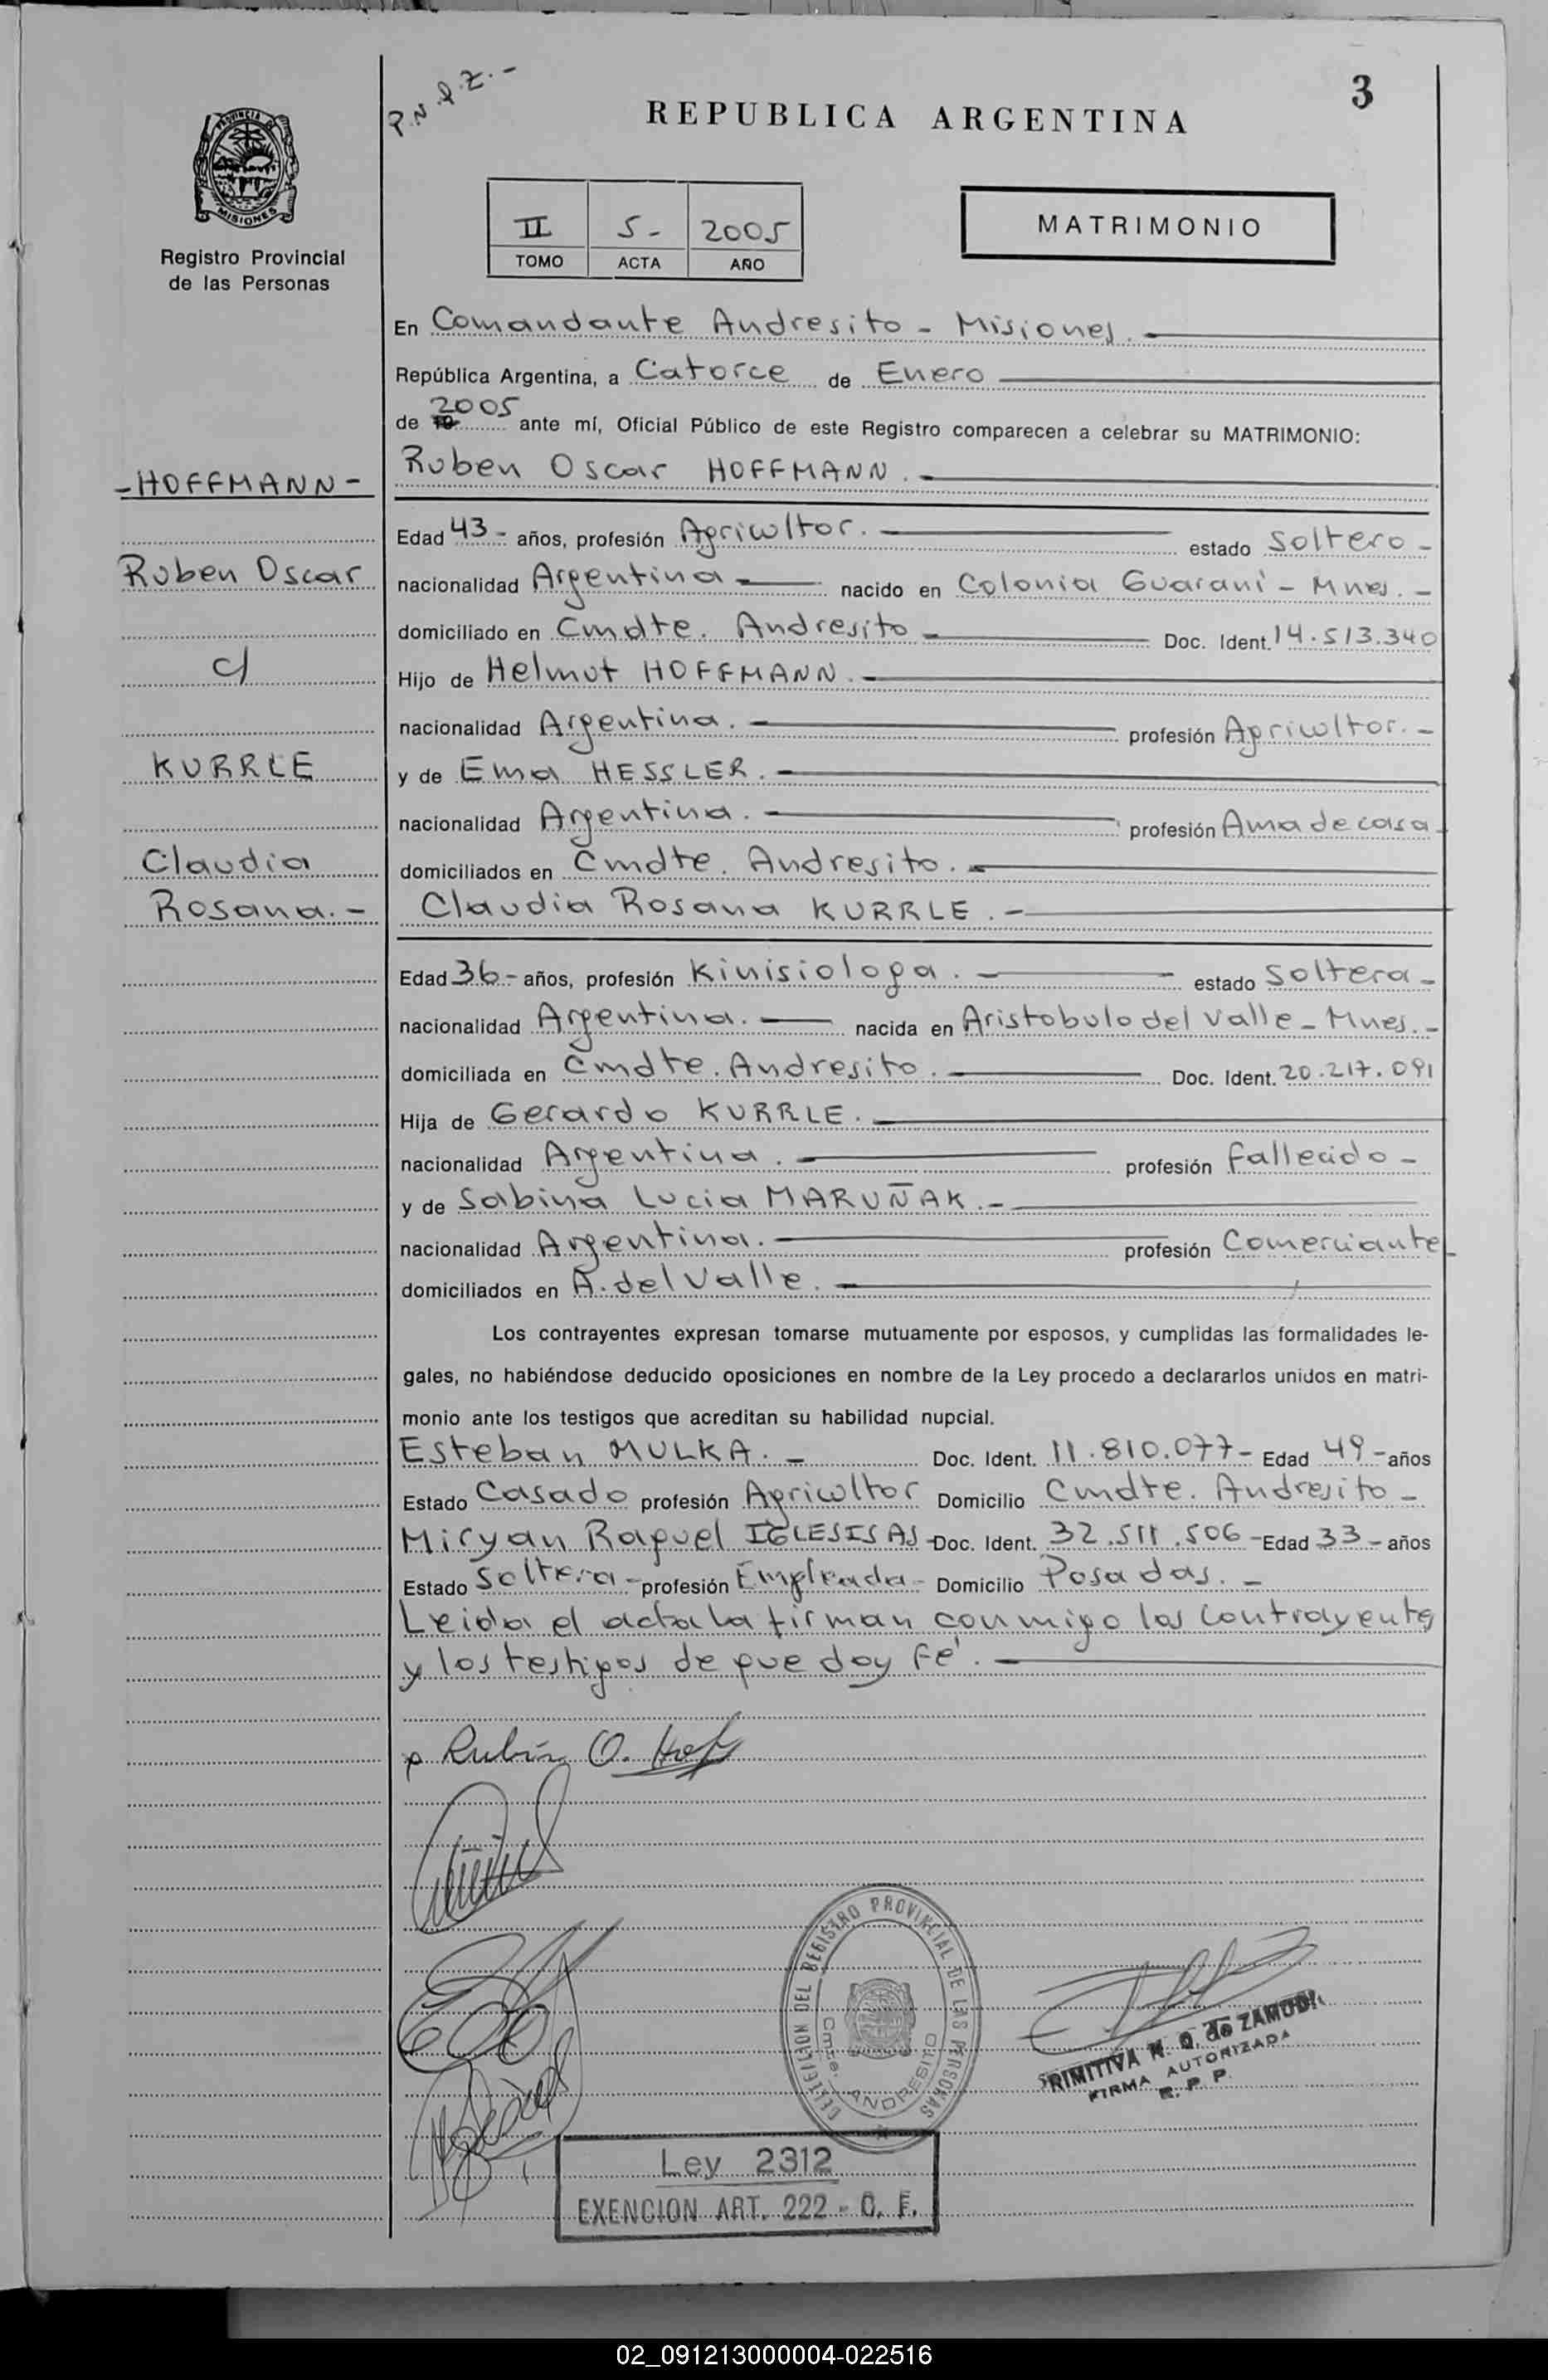 P.N.P.Z.-
3
REPUBLICA ARGENTINA
PROVINCIA DE
MISIONES
Registro Provincial
de las Personas
II 5- 2005
TOMO ACTA AÑO
MATRIMONIO
En Comandante Andresito - Misiones.-
República Argentina, a Catorce de Enero
2005
de 19 ante mí, Oficial Público de este Registro comparecen a celebrar su MATRIMONIO:
Ruben Oscar HOFFMANN.-
-HOFFMANN-
Edad 43- años, profesión Agricultor.- estado Soltero-
Ruben Oscar
nacionalidad Argentina- nacido en Colonia Guaraní - Mnes.-
domiciliado en Cmdte. Andresito- Doc. Ident. 14.513.340
c/
Hijo de Helmut HOFFMANN.-
nacionalidad Argentina.- profesión Agricultor.-
KURRLE
y de Ema HESSLER.-
nacionalidad Argentina.- profesión Ama de casa-
Claudia
domiciliados en Cmdte. Andresito.-
Rosana.-
Claudia Rosana KURRLE.-
Edad 36- años, profesión Kinisiologa.- estado Soltera-
nacionalidad Argentina.- nacida en Aristobulo del Valle - Mnes.-
domiciliada en Cmdte. Andresito.- Doc. Ident. 20.217.091
Hija de Gerardo KURRLE.-
nacionalidad Argentina.- profesión Fallecido-
y de Sabina Lucia MARUÑAK.-
nacionalidad Argentina.- profesión Comerciante-
domiciliados en A. del Valle.-
Los contrayentes expresan tomarse mutuamente por esposos, y cumplidas las formalidades le-
gales, no habiéndose deducido oposiciones en nombre de la Ley procedo a declararlos unidos en matri-
monio ante los testigos que acreditan su habilidad nupcial.
Esteban MULKA.- Doc. Ident. 11.810.077- Edad 49- años
Estado Casado profesión Agricultor Domicilio Cmdte. Andresito-
Miryan Raquel IGLESISAS- Doc. Ident. 32.511.506- Edad 33- años
Estado Soltera- profesión Empleada- Domicilio Posadas.-
Leida el acta la firman conmigo los contrayentes
y los testigos de que doy Fé.-
Rubén O. Hoff
DELEGACION DEL REGISTRO PROVINCIAL DE LAS PERSONAS
Cmte. ANDRESITO
PRIMITIVA N. Q. de ZAMUDI
FIRMA AUTORIZADA
R. P. P.
Ley 2312
EXENCION ART. 222 - C. F.
02_091213000004-022516